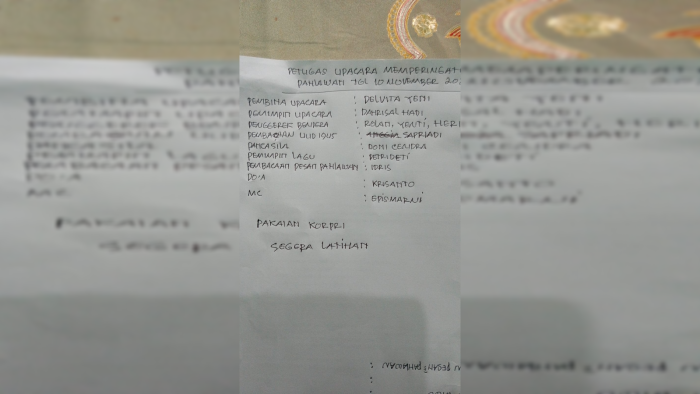 PETUGAS UPACARA MEMPERINGAT
PAHLAWAN TGL 10 NOVEMBER 20
PEMBINA UPACARA : DELVITA YENI
PEMIMPIN UPACARA : DAHRISAL HADI
PENGGEREK BENDERA : ROLAN, YENTI, HERI
PEMBACAAN UUD 1945 : SAPRIADI
PANCASILA : DONI CENDRA
PEMIMPIN LAGU : PETRIDETI
PEMBACAAN PESAN PAHLAWAN : IDRIS
DO'A : KRISANTO
MC : EPISMARNI
PAKAIAN KORPRI
SEGERA LATIHAN
PESAN PAHLAWAN :